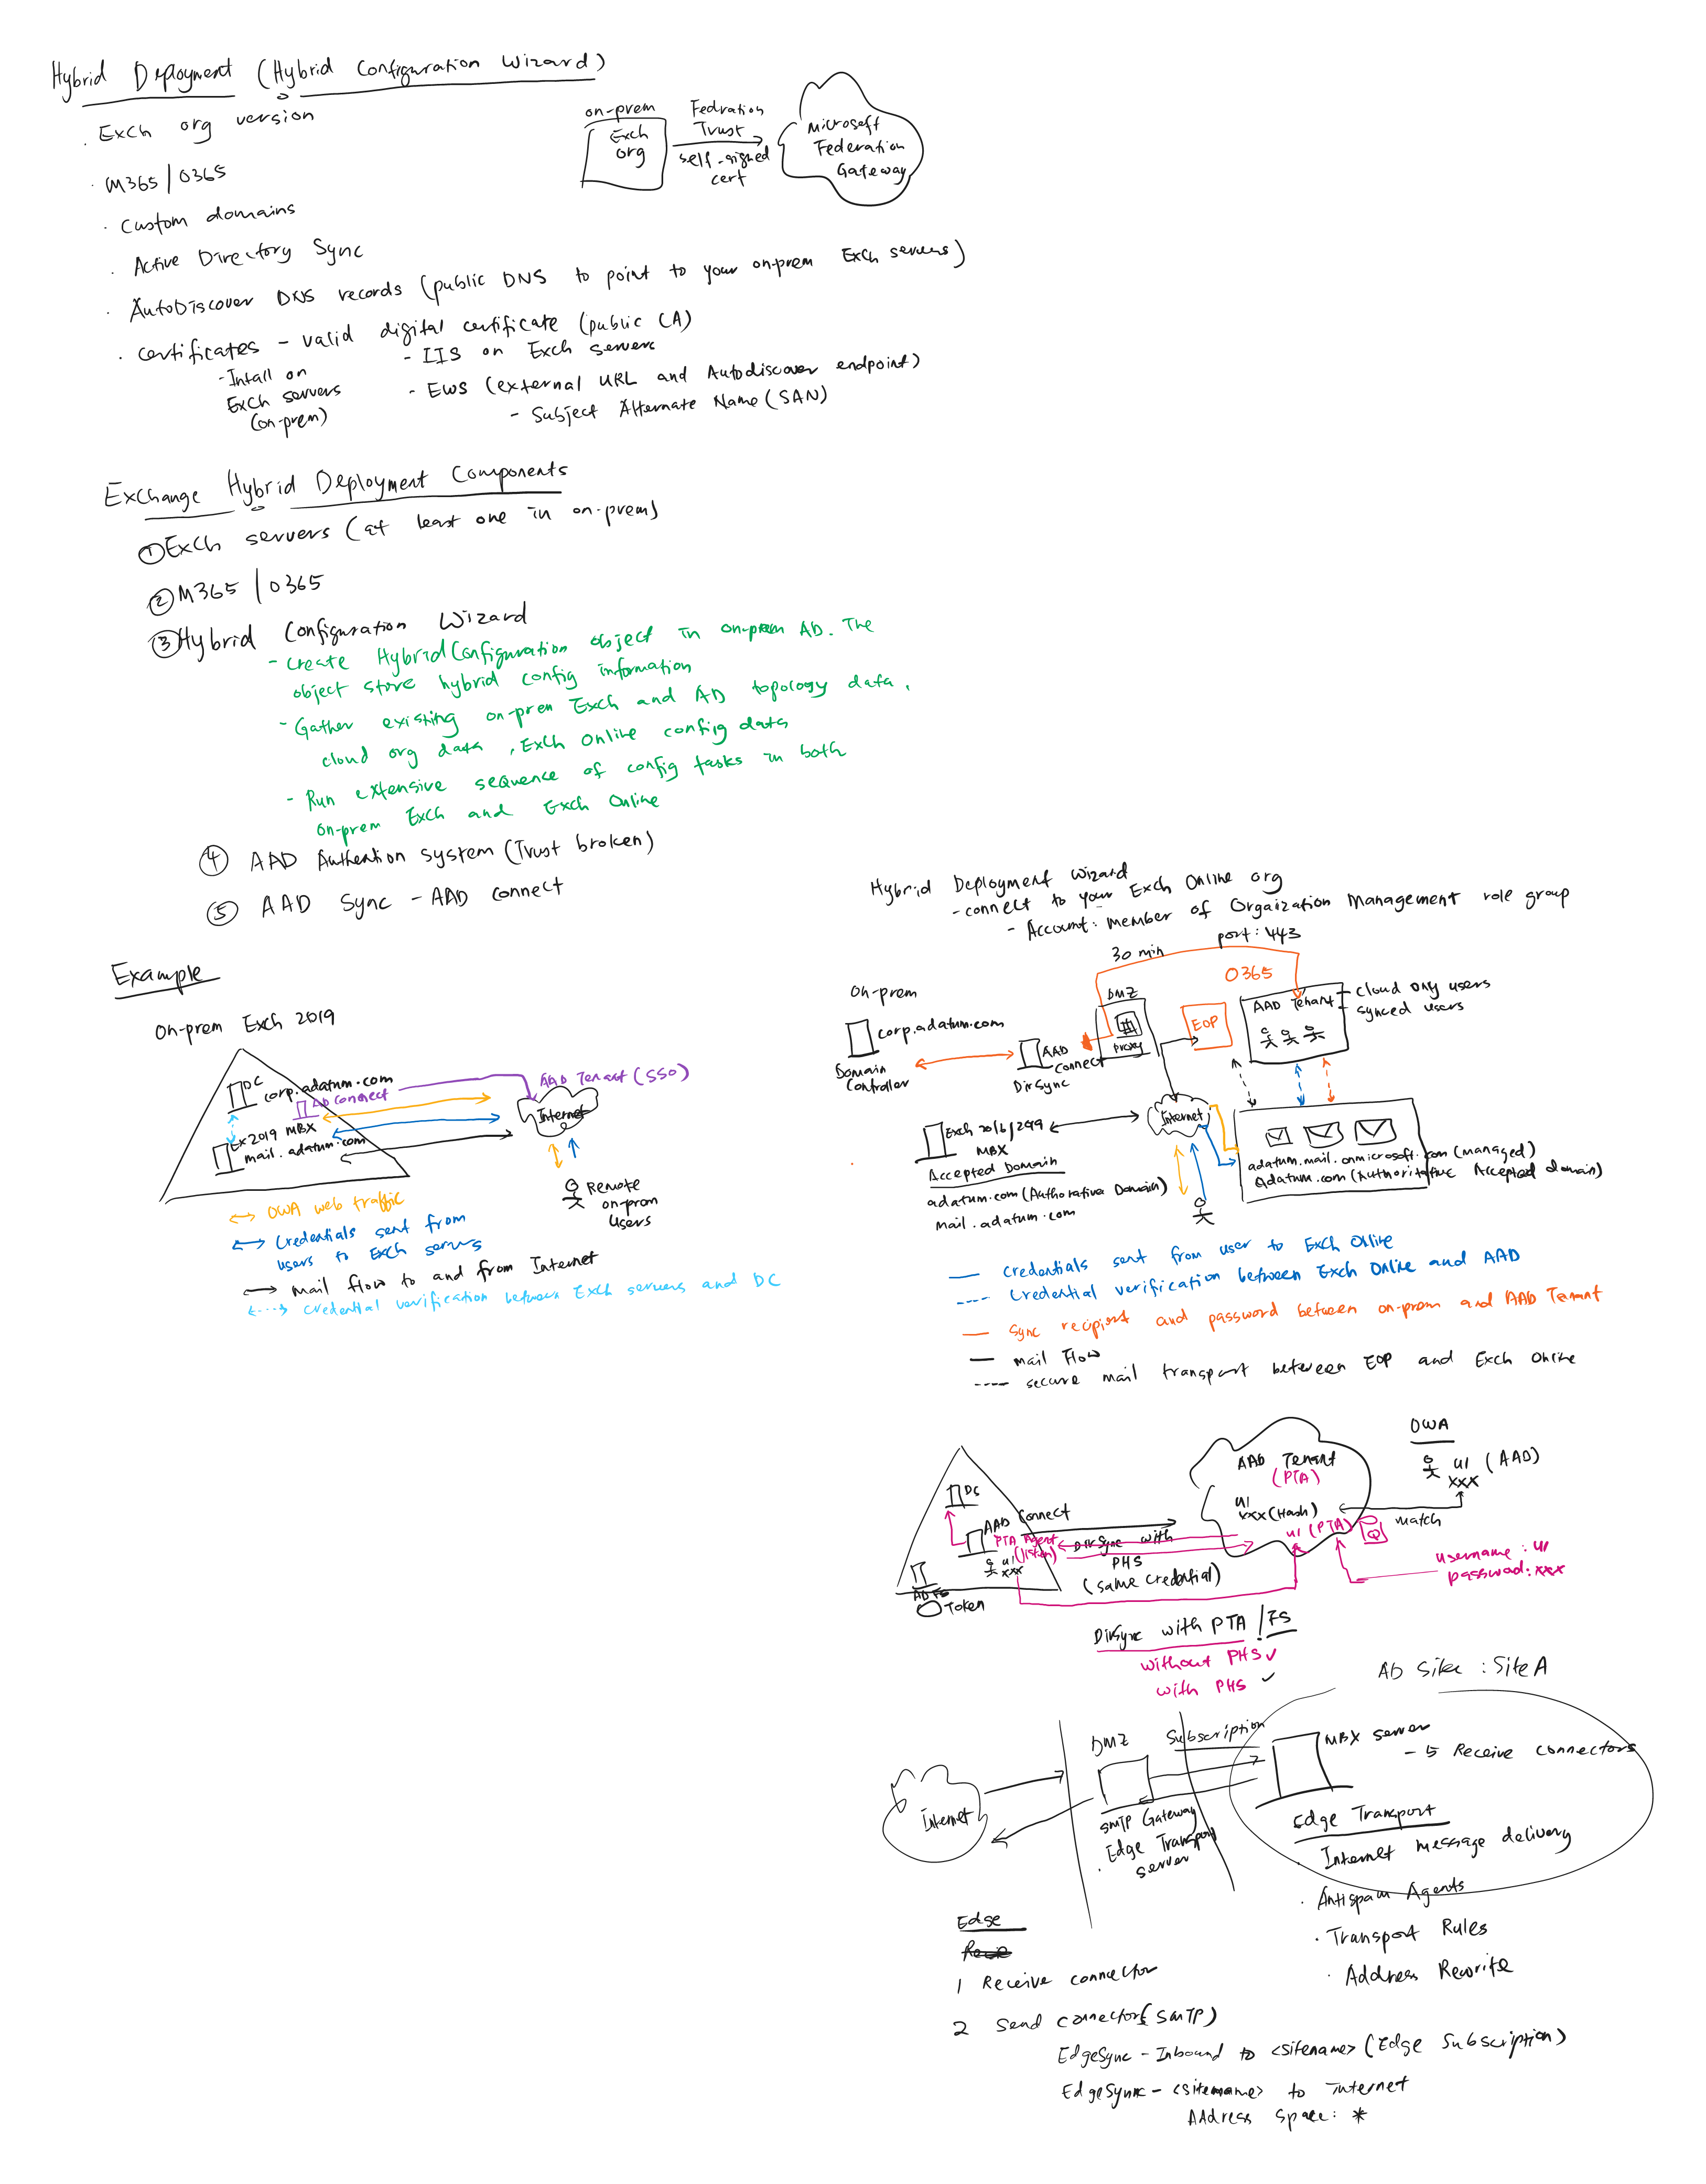 Hybrid Deployment (Hybrid Configuration Wizard)
· Exch org version
· M365/O365
· Custom domains
· Active Directory Sync
· AutoDiscover DNS records (public DNS to point to your on-prem Exch servers)
· Certificates - valid digital certificate (public CA)
- Intall on
Exch servers
(on-prem)
- IIS on Exch servers
- EWS (external URL and Autodiscover endpoint)
- Subject Alternate Name (SAN)
on-prem
Exch
org
Fedration
Trust
self-signed
cert
Microsoft
Federation
Gateway
Exchange Hybrid Deployment Components
① Exch servers (at least one in on-prem)
② M365/O365
③ Hybrid Configuration Wizard
- Create HybridConfiguration object in on-prem AD. The
object store hybrid config information
- Gather existing on-prem Exch and AD topology data,
cloud org data, Exch Online config data
- Run extensive sequence of config tasks in both
on-prem Exch and Exch Online
④ AAD Authention system (Trust broken)
⑤ AAD Sync - AAD Connect
Example
On-prem Exch 2019
DC
corp.adatum.com
AD Connect
Ex2019 MBX
mail.adatum.com
AAD Tenant (SSO)
Internet
Remote
on-prom
Users
OWA web traffic
Credentials sent from
users to Exch servers
mail flow to and from Internet
credential verification between Exch servers and DC
Hybrid Deployment Wizard
- connect to your Exch Online org
- Account: member of Orgaization Management role group
port: 443
30 min
O365
On-prem
corp.adatum.com
Domain
Controller
AAD
Connect
DirSync
DMZ
Proxy
EOP
AAD Tenant
cloud only users
synced users
Exch 2016/2019
MBX
Accepted Domain
adatum.com (Authorative Domain)
mail.adatum.com
Internet
adatum.mail.onmicrosoft.com (managed)
adatum.com (Authoritative Accepted domain)
credentials sent from user to Exch Online
---- credential verification between Exch Online and AAD
Sync recipient and password between on-prem and AAD Tenant
mail Flow
---- secure mail transport between EOP and Exch Online
DC
AAD Connect
PTA Agent
u1 (listen)
xxx
AD FS
Token
DirSync with
PHS
(same credential)
AAD Tenant
(PTA)
u1
xxx (Hash)
u1 (PTA)
Q
match
OWA
u1 (AAD)
xxx
username: u1
password: xxx
DirSync with PTA / FS
without PHS ✓
with PHS ✓
AD Site : SiteA
DMZ
Subscription
MBX server
- 5 Receive connectors
Internet
SMTP Gateway
· Edge Transport
server
Edge Transport
· Internet message delivery
· Antispam Agents
· Transport Rules
· Address Rewrite
Edge
1 Receive connector
2 Send connectors (SMTP)
EdgeSync - Inbound to <sitename> (Edge Subscription)
EdgeSync - <sitename> to Internet
Address Space: *